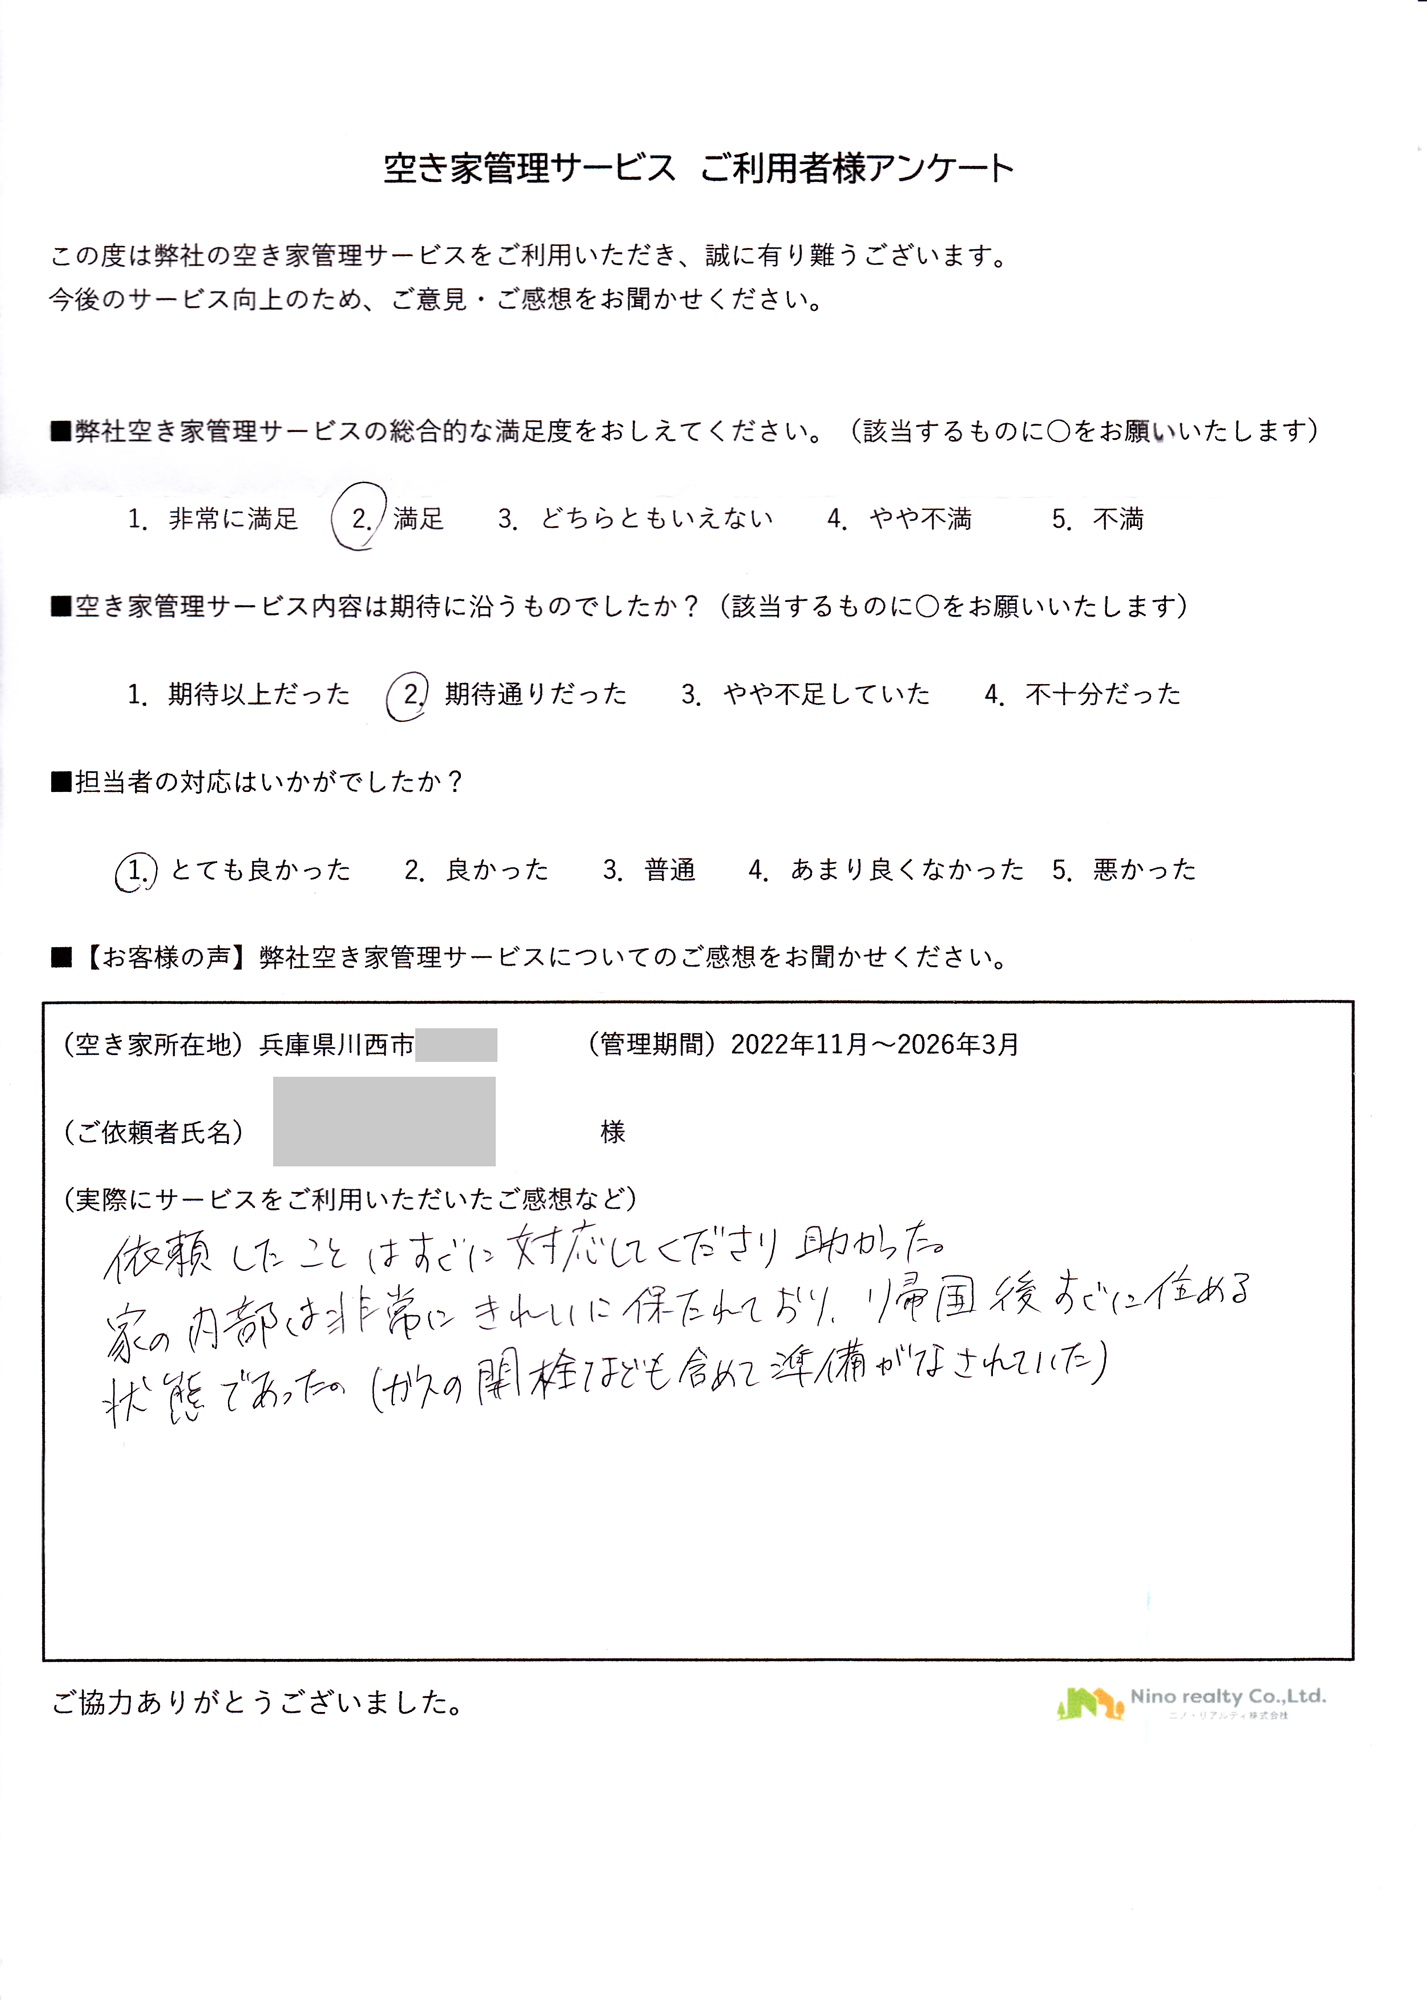 空き家管理サービス ご利用者様アンケート
この度は弊社の空き家管理サービスをご利用いただき、誠に有り難うございます。
今後のサービス向上のため、ご意見・ご感想をお聞かせください。
■弊社空き家管理サービスの総合的な満足度をおしえてください。（該当するものに〇をお願いいたします）
1．非常に満足 2．満足 3．どちらともいえない 4．やや不満 5．不満
■空き家管理サービス内容は期待に沿うものでしたか？（該当するものに〇をお願いいたします）
1．期待以上だった 2．期待通りだった 3．やや不足していた 4．不十分だった
■担当者の対応はいかがでしたか？
1．とても良かった 2．良かった 3．普通 4．あまり良くなかった 5．悪かった
■【お客様の声】弊社空き家管理サービスについてのご感想をお聞かせください。
（空き家所在地）兵庫県川西市 （管理期間）2022年11月～2026年3月
（ご依頼者氏名） 様
（実際にサービスをご利用いただいたご感想など）
依頼したことはすぐに対応してくださり助かった。
家の内部は非常にきれいに保たれており、帰国後すぐに住める
状態であった。（ガスの開栓なども含めて準備がなされていた）
ご協力ありがとうございました。
Nino realty Co.,Ltd.
ニノ・リアルティ株式会社